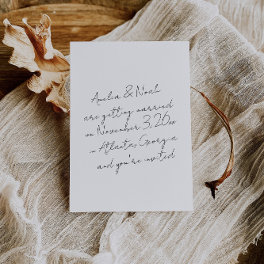 Amelia & Noah
are getting married
on November 3, 26
in Atlanta, Georgia
and you're invited